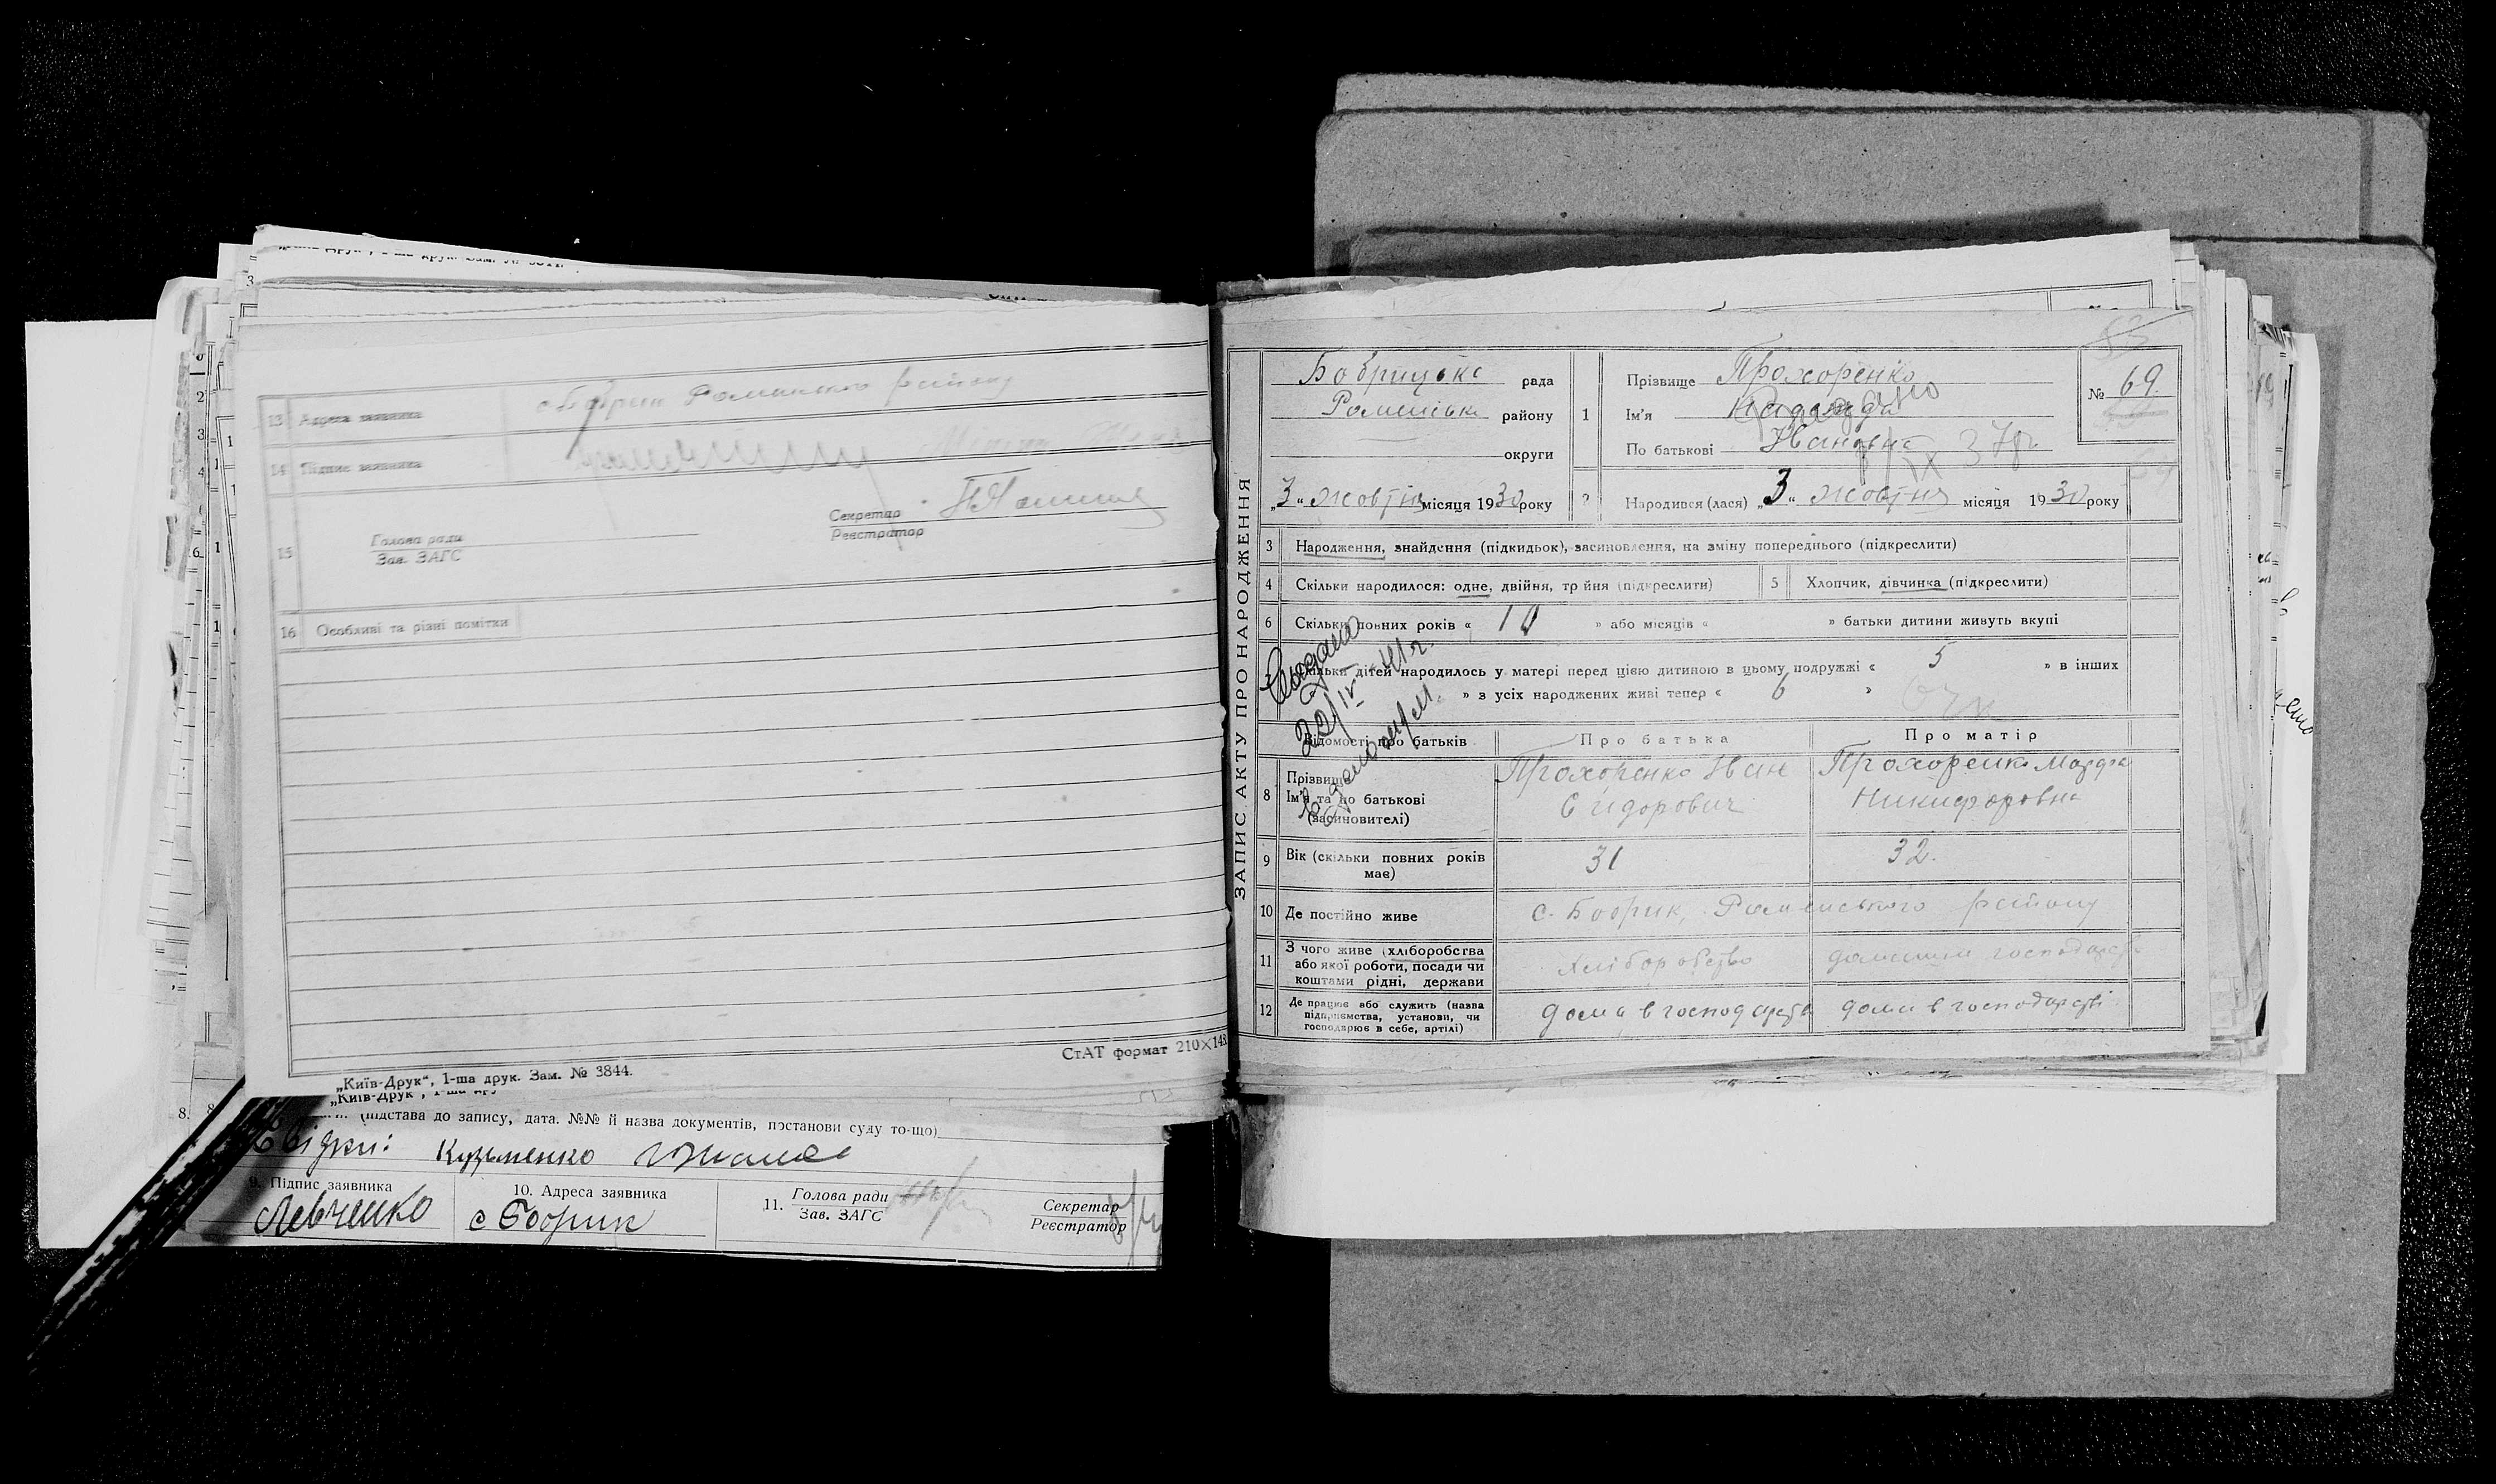 13 Адреса заявника с. Бобрик Роменського району
14 Підпис заявника
15 Голова ради
Зав. ЗАГС
Секретар
Реєстратор
16 Особливі та різні помітки
СтАТ формат 210×148
„Київ-Друк“, 1-ша друк. Зам. № 3844.
„Київ-Друк“, 1-ша
(підстава до запису, дата. №№ й назва документів, постанови суду то-що)
Свідки: Кузьменко
9. Підпис заявника
Левченко
10. Адреса заявника
с Бобрик
11. Голова ради
Зав. ЗАГС
Секретар
Реєстратор
ЗАПИС АКТУ ПРО НАРОДЖЕННЯ
Бобрицька рада
Роменськ району
округи
„3“ жовтня місяця 1930 року
1 Прізвище Прохоренко
Ім'я Надежда
По батькові Ивановна
№ 69.
Видано
IX 37р.
2 Народився (лася) „3“ жовтня місяця 1930 року
3 Народження, знайдення (підкидьок), засиновлення, на зміну попереднього (підкреслити)
4 Скільки народилося: одне, двійня, трійня (підкреслити)
5 Хлопчик, дівчинка (підкреслити)
6 Скільки повних років « 10 » або місяців « » батьки дитини живуть вкупі
7 Скільки дітей народилось у матері перед цією дитиною в цьому подружжі « 5 » в інших
» з усіх народжених живі тепер « 6 »
22/IV 41 г.
Відомості про батьків
Про батька
Про матір
8 Прізвище
Ім'я та по батькові
(засиновителі)
Прохоренко Иван
Сидорович
Прохоренко Марфа
Никифоровна
9 Вік (скільки повних років має)
31
32.
10 Де постійно живе
с. Бобрик, Роменського району
11 З чого живе (хліборобства або якої роботи, посади чи коштами рідні, держави
хліборобство
домашнє господарст
12 Де працює або служить (назва підприємства, установи, чи господарює в себе, артілі)
дома в господарстві
дома в господарстві